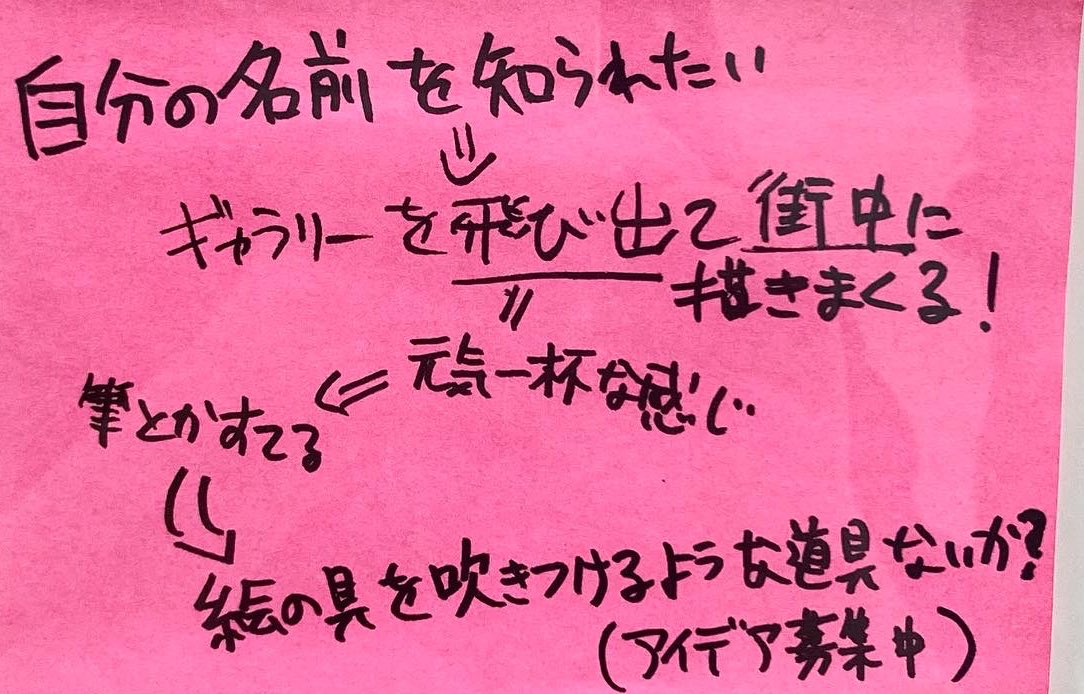 自分の名前を知られたい
⇓
ギャラリーを飛び出て街中に
描きまくる!
〃
元気一杯な感じ
⇐
筆とかすてる
⇓
絵の具を吹きつけるような道具ないか?
(アイデア募集中)